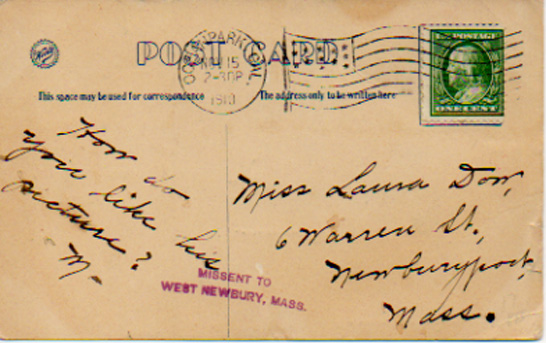 POST CARD
15
2-30P
1910
POSTAGE
ONE CENT
This space may be used for correspondence
The address only to be written here
How do
you like his
picture?
M.
Miss Laura Dow,
6 Warren St.,
Newburyport,
Mass.
MISSENT TO
WEST NEWBURY, MASS.